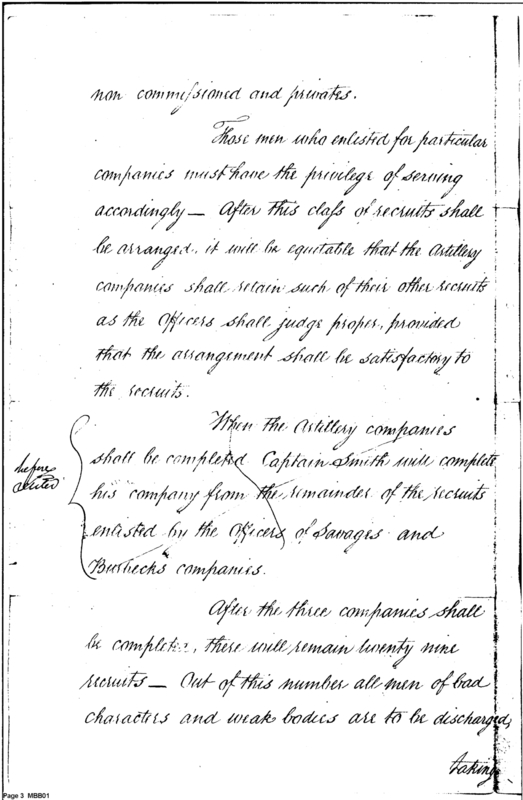 non commissioned and privates.
Those men who enlisted for particular
companies must have the privilege of serving
accordingly — After this class of recruits shall
be arranged, it will be equitable that the Artillery
companies shall retain such of their other recruits
as the Officers shall judge proper, provided
that the arrangement shall be satisfactory to
the recruits.
When the Artillery companies
shall be completed Captain Smith will complete
his company from the remainder of the recruits
enlisted by the Officers of Savages and
Burbecks companies.
before
After the three companies shall
be complete, there will remain twenty nine
recruits — Out of this number all men of bad
characters and weak bodies are to be discharged,
taking
Page 3 MBB01